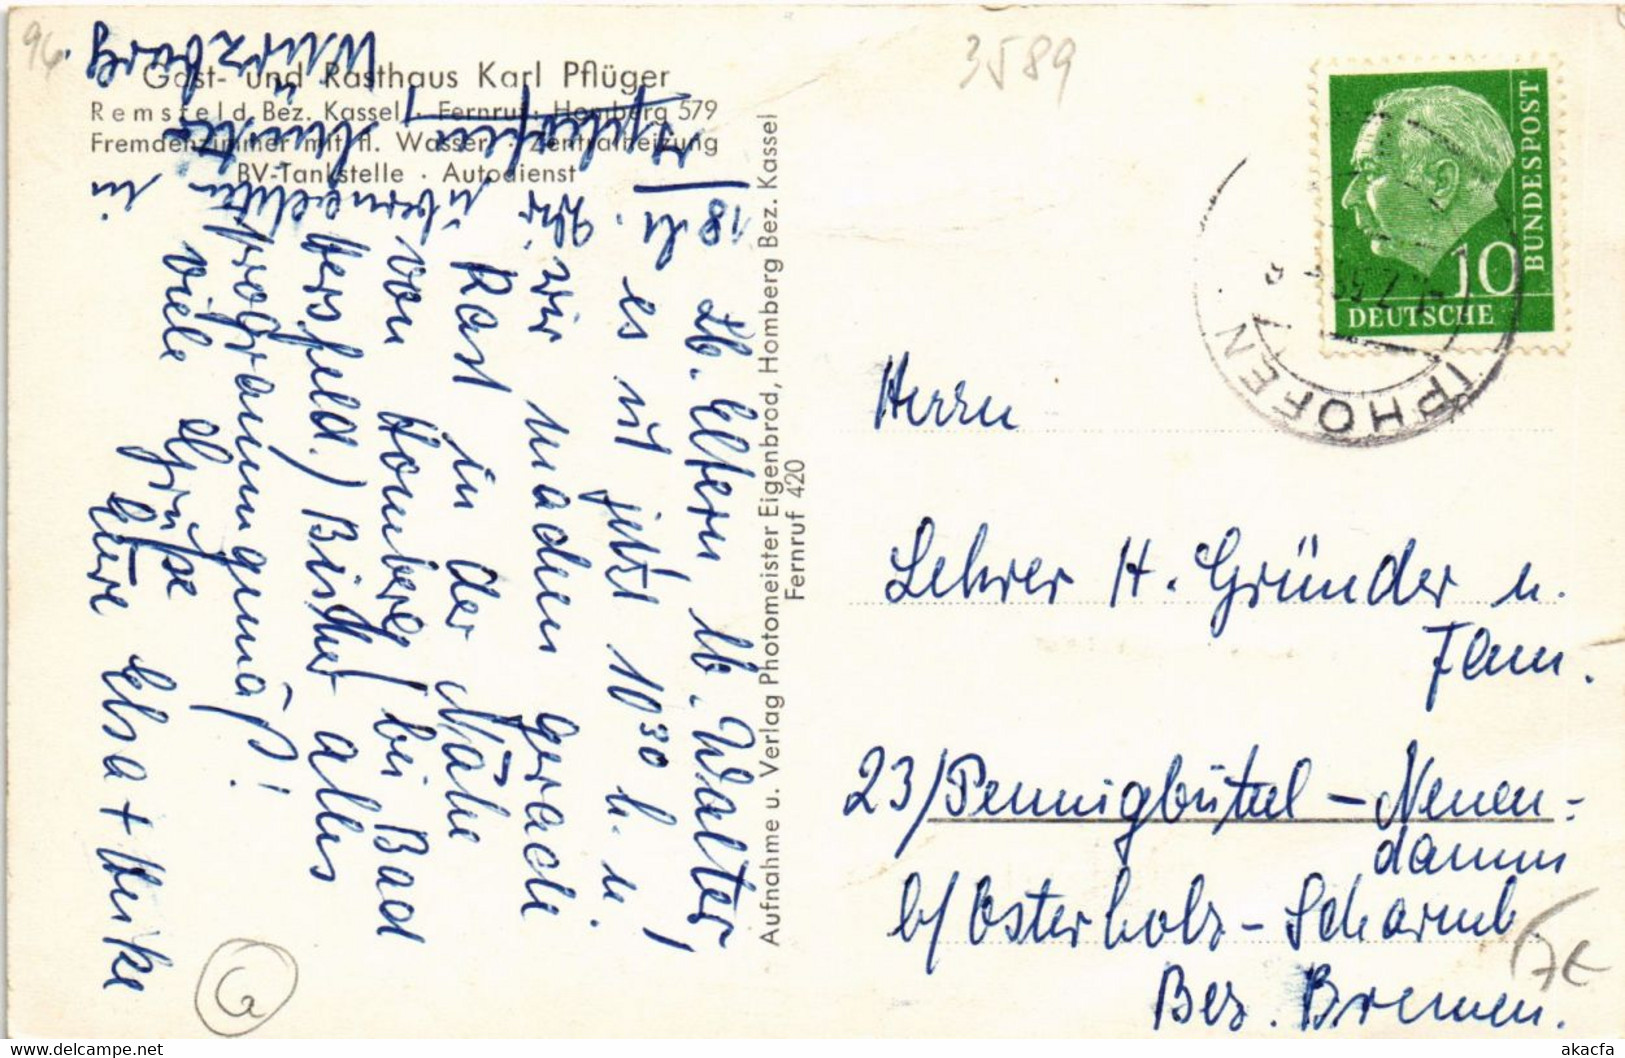 96
3589
Gast- und Rasthaus Karl Pflüger
Remsfeld, Bez. Kassel · Fernruf: Homberg 579
Fremdenzimmer mit fl. Wasser · Zentralheizung
BV-Tankstelle · Autodienst
Aufnahme u. Verlag Photomeister Eigenbrod, Homberg Bez. Kassel
Fernruf 420
Lb. Eltern, lb. Walter,
es ist jetzt 10 30 h. u.
wir machen gerade
Rast in der Nähe
von Homberg (bei Bad
Hersfeld.) Bisher alles
programmgemäß!
Viele Grüße
Eure Elsa + Heike
18 h.
Wir übernachten
in
u.
Würzburg.
DEUTSCHE
BUNDESPOST
10
IPHOFEN
Herrn
Lehrer H. Gründer u.
Fam.
23/Pennigbüttel – Neuen=
damm
b/Osterholz – Scharmb
Bez. Bremen.
7€
G
akacfa